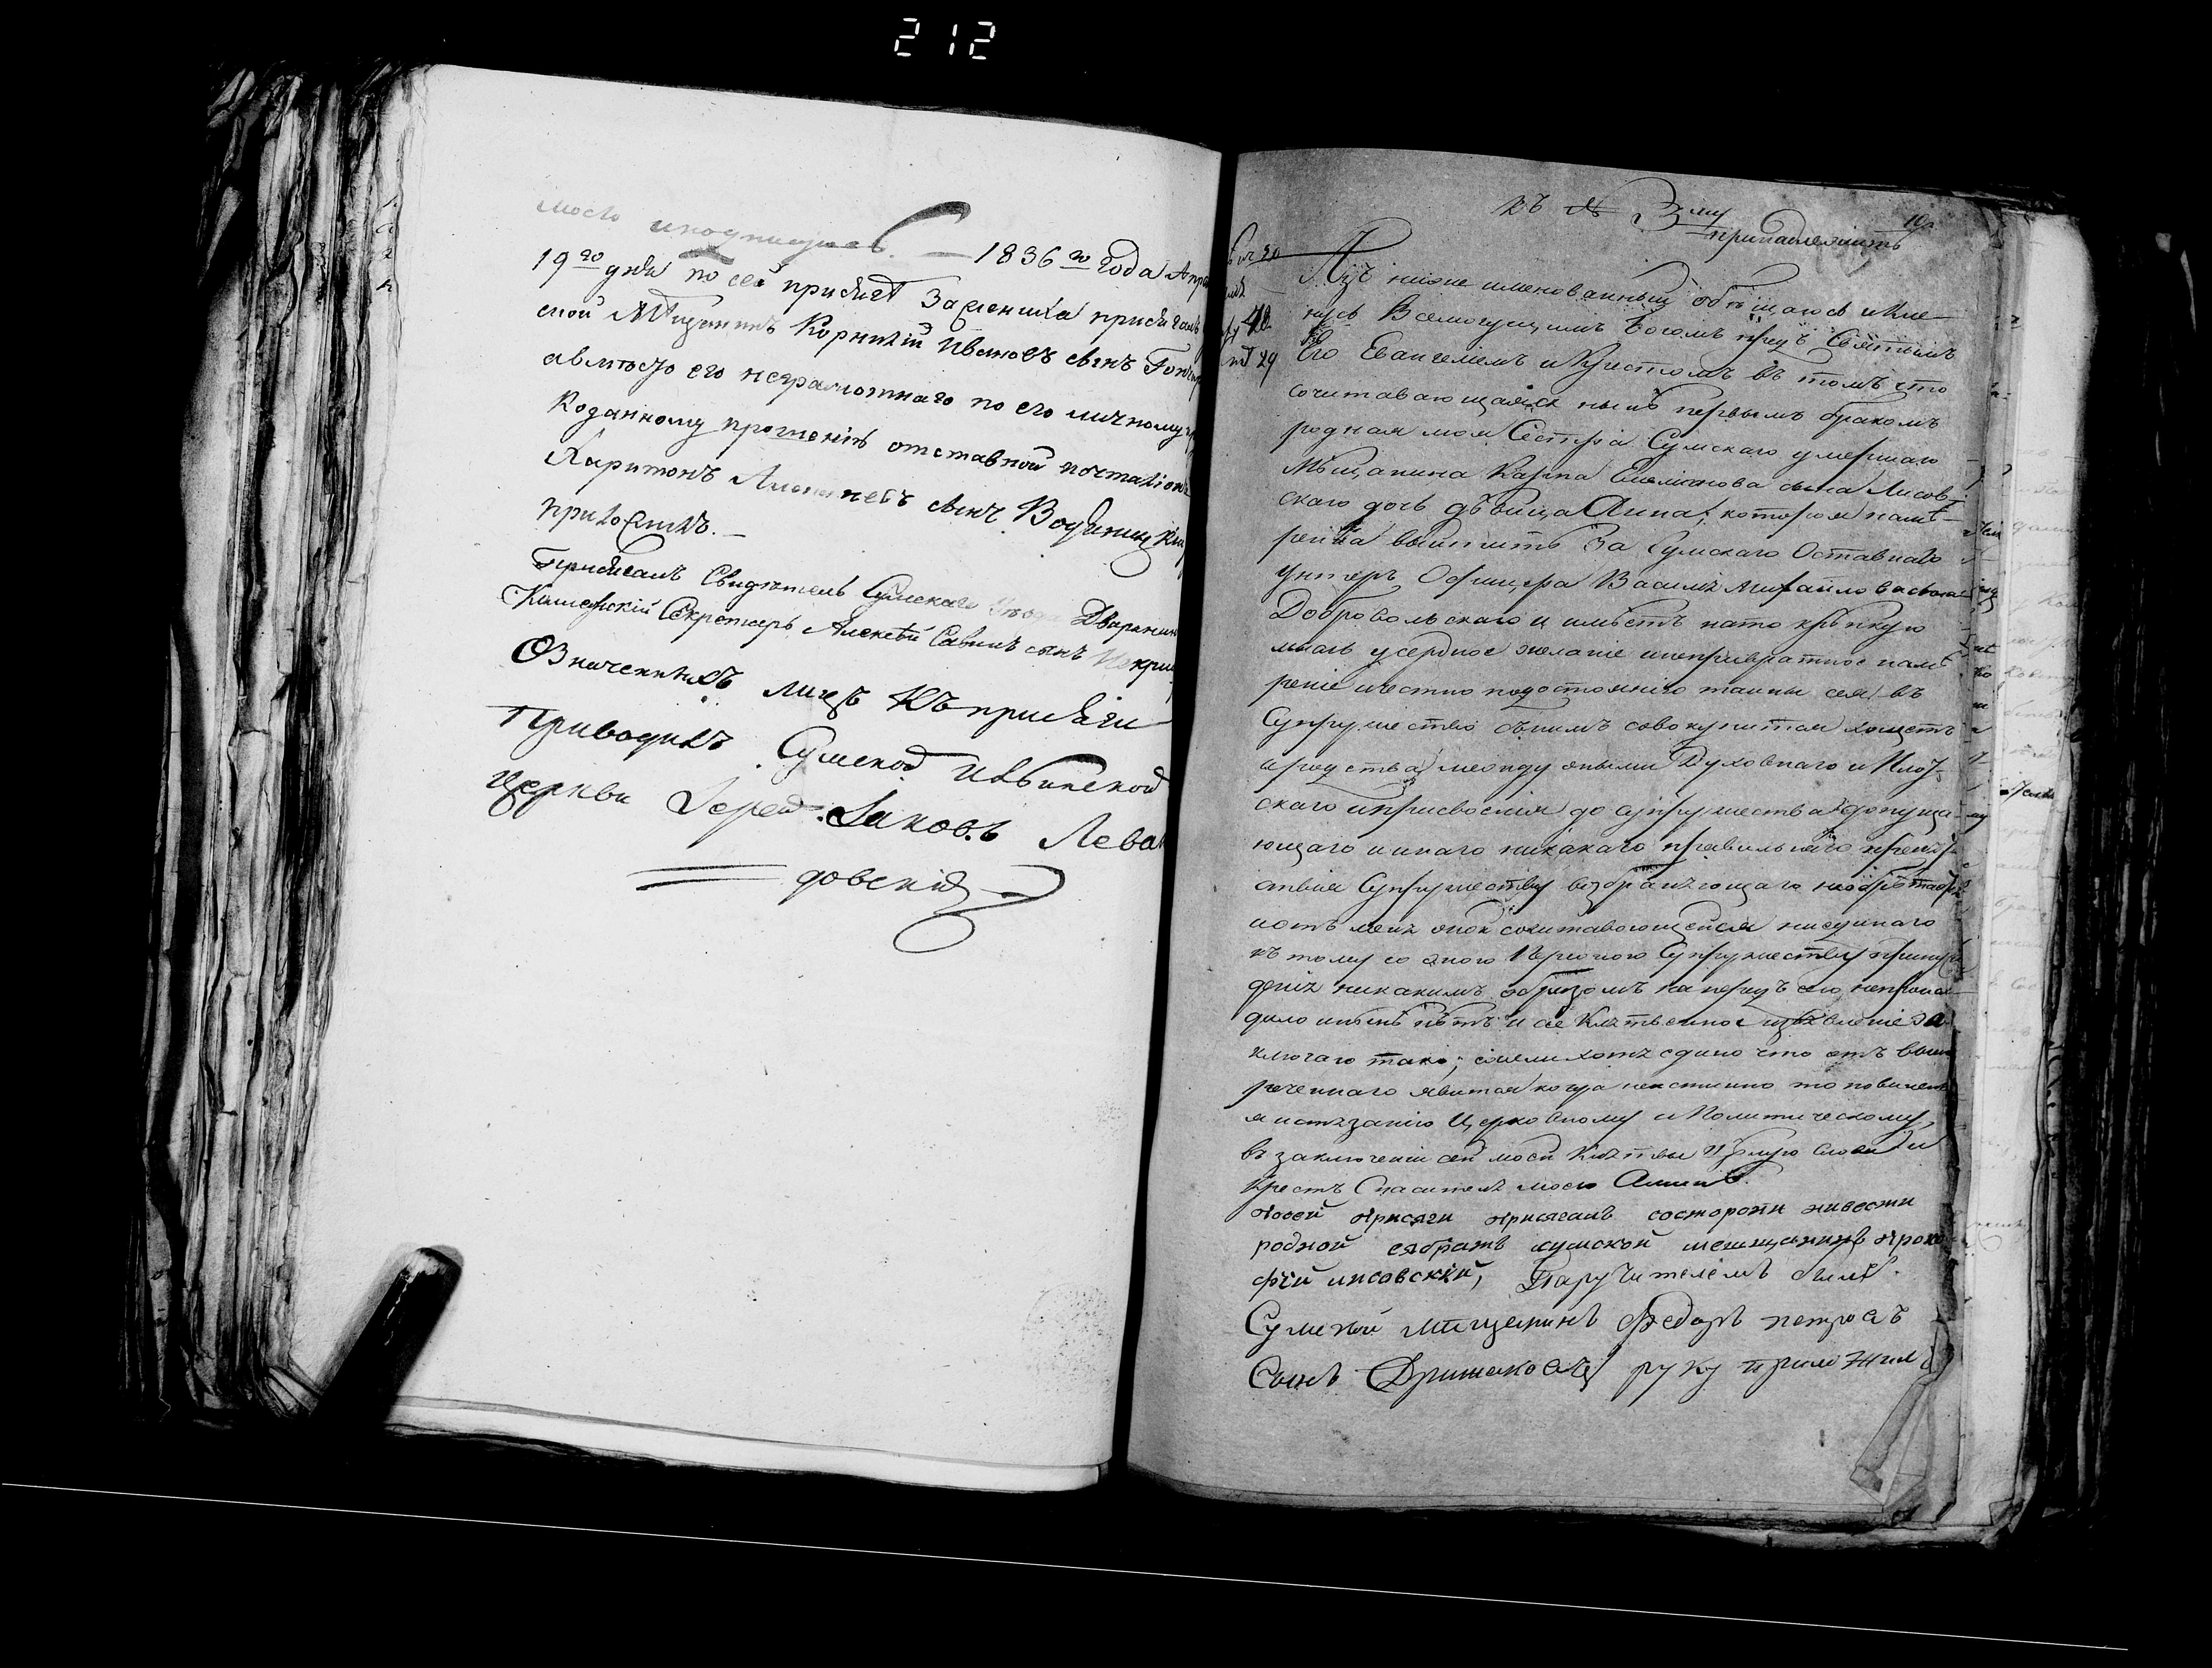 212
моею
1836го года Апр
19го дня по сей присяге За жениха присягалъ
ской Мещанинъ Корнилій Ивановъ сынъ Гонч
авместо его неграмотнаго по его личному
Коданному прошенію отставной почталіонъ
Харитонъ сынъ
приложилъ.
Присягалъ Свидѣтель Сумскаго Дворянинъ
Секретарь Алексѣй Саввинъ сынъ
Означенныхъ лицъ Къ присяги
Приводилъ Сумской Ильинской
Церкви Іерей Іаковъ Лева
довскій
къ № 3му
принадлежитъ
Азъ ниже именованный обѣщаюсь и Кле
нусь Всемогущимъ Богомъ предъ Святымъ
Его Евангеліемъ и Крестомъ въ томъ что
сочитавающаяся нынѣ первымъ бракомъ
родная моя Сестра Сумскаго умершаго
Мѣщанина Карпа Емелianова сына Лисов-
скаго дочь дѣвица Анна, которая намѣ-
рена выйтить За Сумскаго Оставнаго
Унтеръ Офицера Василя Михайлова сына
Добровольскаго и имѣетъ на то крѣпкую
мысль усердное желаніе и непревратное намѣ
реніе и честно подостоянію тайны сея въ
Супружество сънимъ совокупится хощетъ
а родства между оными Духовнаго и Плот-
скаго и присвоенія до супружества недопуща
ющаго и инаго никакаго правильнаго препят
ствія Супружеству возбраняющаго
и отъ меня оной сочитавающейся ниединаго
къ тому со оною Персоною Супружеству принуж
денія никакимъ образомъ напредъ сего непроисхо
дило и нынѣ нѣтъ и се Клятвенное изъявленіе за
ключаю тако; ежели хотя едино что отъ выше
реченнаго явится когда неистинно то повиненъ
я истязанію Церковному и Политическому,
въ заключеніи сей моей Клятвы цѣлую Слова и
Крестъ Спасителя моего Аминь.
посей присяги присягалъ состороны нивести
родной ея братъ сумской мешщанинъ проко
фій лисовскій, Паручителемъ былъ
Сумской мещанинъ Федоръ петровъ
Сынъ руку приложил